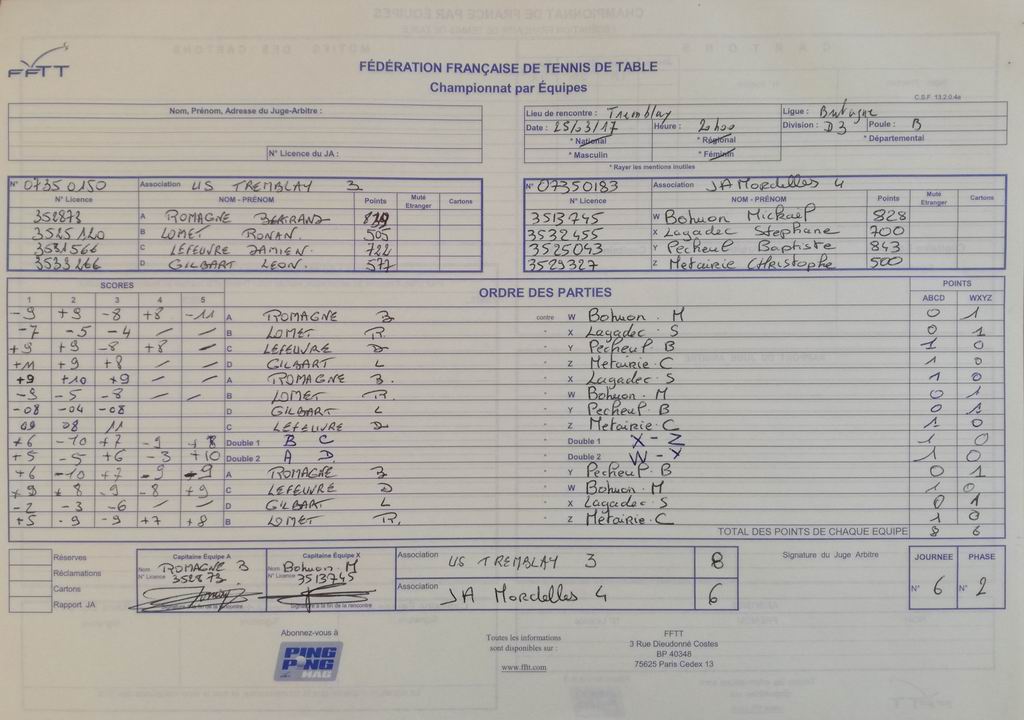 FFTT
FÉDÉRATION FRANÇAISE DE TENNIS DE TABLE
Championnat par Équipes
C.S.F. 13.2.0.4a
Nom, Prénom, Adresse du Juge-Arbitre :
N° Licence du JA :
Lieu de rencontre : Tremblay Ligue : Bretagne
Date : 25/03/17 Heure : 20h00 Division : D3 Poule : B
* National * Régional * Départemental
* Masculin * Féminin
* Rayer les mentions inutiles
N° 07350150 Association US TREMBLAY 3
N° Licence NOM - PRÉNOM Points Muté Etranger Cartons
352873 A ROMAGNE BERTRAND 819
3525120 B LOMET RONAN. 505
3531566 C LEFEUVRE DAMIEN. 722
3533266 D GILBART LEON. 577
N° 07350183 Association JA Mordelles 4
N° Licence NOM - PRÉNOM Points Muté Etranger Cartons
3513745 W Bohuon Mickaël 828
3532455 X Lagadec Stephane 700
3525043 Y Pecheul Baptiste 843
3529327 Z Metairie Christophe 500
SCORES ORDRE DES PARTIES POINTS
1 2 3 4 5 ABCD WXYZ
-9 +9 -8 +8 -11 A ROMAGNE B contre W Bohuon . M 0 1
-7 -5 -4 – – B LOMET R. " X Lagadec . S 0 1
+9 +9 -8 +8 – C LEFEUVRE D " Y Pecheul B 1 0
+11 +9 +8 – – D GILBART L " Z Metairie . C 1 0
+9 +10 +9 – – A ROMAGNE B. " X Lagadec . S 1 0
-9 -5 -8 – – B LOMET R. " W Bohuon . M 0 1
-08 -04 -08 D GILBART L " Y Pecheul . B 0 1
09 08 11 C LEFEUVRE D " Z Metairie . C 1 0
+6 -10 +7 -9 +8 Double 1 B C " Double 1 X - Z 1 0
+5 -5 +6 -3 +10 Double 2 A D " Double 2 W - Y 1 0
+6 -10 +7 -9 -9 A ROMAGNE B " Y Pecheul . B 0 1
+9 +8 -9 -8 +9 C LEFEUVRE D " W Bohuon . M 1 0
-2 -3 -6 – – D GILBART L " X Lagadec . S 0 1
+5 -9 -9 +7 +8 B LOMET R. " Z Metairie . C 1 0
TOTAL DES POINTS DE CHAQUE EQUIPE 8 6
Réserves
Réclamations
Cartons
Rapport JA
Capitaine Équipe A
Nom ROMAGNE B
N° Licence 352873.
Signature à la fin de la rencontre
Capitaine Équipe X
Nom Bohuon . M
N° Licence 3513745
Signature à la fin de la rencontre
Association US TREMBLAY 3 8
Association JA Mordelles 4 6
Signature du Juge Arbitre
JOURNEE PHASE
N° 6 N° 2
Abonnez-vous à
PING PONG MAG
Toutes les informations
sont disponibles sur :
www.fftt.com
FFTT
3 Rue Dieudonné Costes
BP 40348
75625 Paris Cedex 13